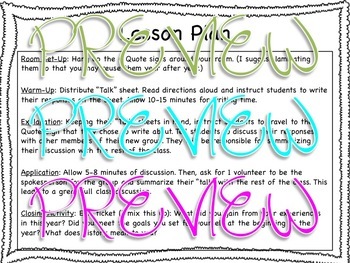 Lesson Plan
PREVIEW
Room Set-Up: Hang the Quote signs around your room. (I suggest laminating
them so that you may reuse them year after year.)
Warm-Up: Distribute "Talk" sheet. Read directions aloud and instruct students to write
their response on the sheet. Allow 10-15 minutes for writing time.
PREVIEW
Keeping the "Talk" sheets in hand, instruct students to travel to the
Quote Sign that they chose to write about. Students discuss responses
with other members of their new group. They will be responsible for summarizing
their discussion with the rest of the class.
Application: Allow 5-8 minutes of discussion. Then, ask for 1 volunteer to be the
spokesperson of the group and summarize their "talk" with the rest of the class. This
lead to a great full class discussion.
PREVIEW
Closing Activity: Exit Ticket ( mix this up): What did you gain from your experiences
in this year? Did you meet the goals you set for yourself at the beginning of the
year? What does history mean to you?